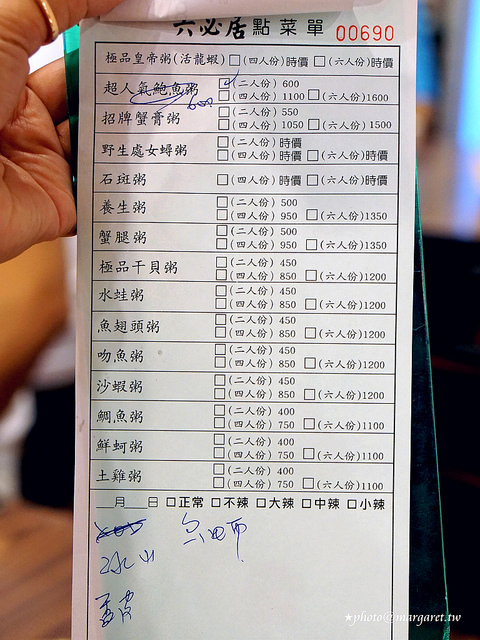 六必居 點菜單 00690
極品皇帝粥(活龍蝦) □(四人份)時價 □(六人份)時價
超人氣鮑魚粥 □(二人份) 600
600
□(四人份) 1100 □(六人份)1600
招牌蟹膏粥 □(二人份) 550
□(四人份) 1050 □(六人份) 1500
野生處女蟳粥 □(二人份) 時價
□(四人份) 時價 □(六人份)時價
石斑粥 □(四人份)時價 □(六人份)時價
養生粥 □(二人份) 500
□(四人份) 950 □(六人份)1350
蟹腿粥 □(二人份) 500
□(四人份) 950 □(六人份)1350
極品干貝粥 □(二人份) 450
□(四人份) 850 □(六人份)1200
水蛙粥 □(二人份) 450
□(四人份) 850 □(六人份)1200
魚翅頭粥 □(二人份) 450
□(四人份) 850 □(六人份)1200
吻魚粥 □(二人份) 450
□(四人份) 850 □(六人份)1200
沙蝦粥 □(二人份) 450
□(四人份) 850 □(六人份)1200
鯛魚粥 □(二人份) 400
□(四人份) 750 □(六人份)1100
鮮蚵粥 □(二人份) 400
□(四人份) 750 □(六人份)1100
土雞粥 □(二人份) 400
□(四人份) 750 □(六人份)1100
__月__日 □正常 □不辣 □大辣 □中辣 □小辣
★photo@margaret.tw